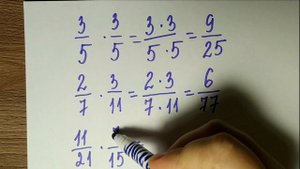 3/5 · 3/5 = 3·3/5·5 = 9/25
2/7 · 3/11 = 2·3/7·11 = 6/77
11/21 · /15